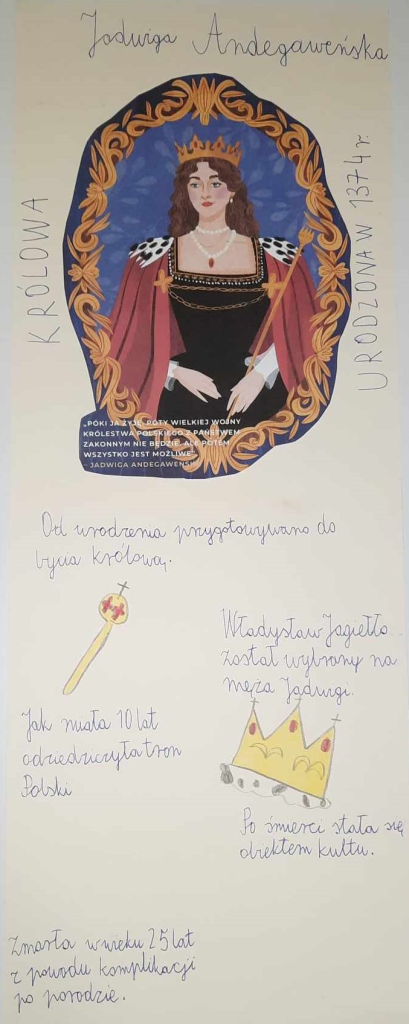 Jadwiga Andegaweńska
KRÓLOWA
URODZONA W 1374 r.
„PÓKI JA ŻYJĘ, PÓTY WIELKIEJ WOJNY
KRÓLESTWA POLSKIEGO Z PAŃSTWEM
ZAKONNYM NIE BĘDZIE, ALE POTEM
WSZYSTKO JEST MOŻLIWE"
- JADWIGA ANDEGAWEŃSKA
Od urodzenia przygotowywano do
bycia królową.
Władysław Jagiełło
został wybrany na
męża Jadwigi.
Jak miała 10 lat
odziedziczyła tron
Polski
Po śmierci stała się
obiektem kultu.
Zmarła w wieku 25 lat
z powodu komplikacji
po porodzie.